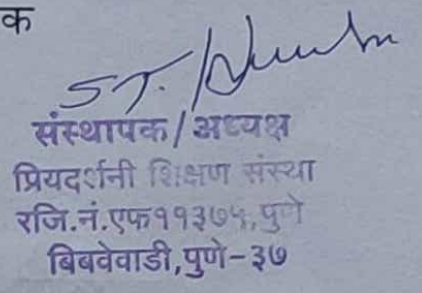 क
संस्थापक/अध्यक्ष
प्रियदर्शनी शिक्षण संस्था
रजि.नं.एफ११३७५,पुणे
बिबवेवाडी,पुणे-३७